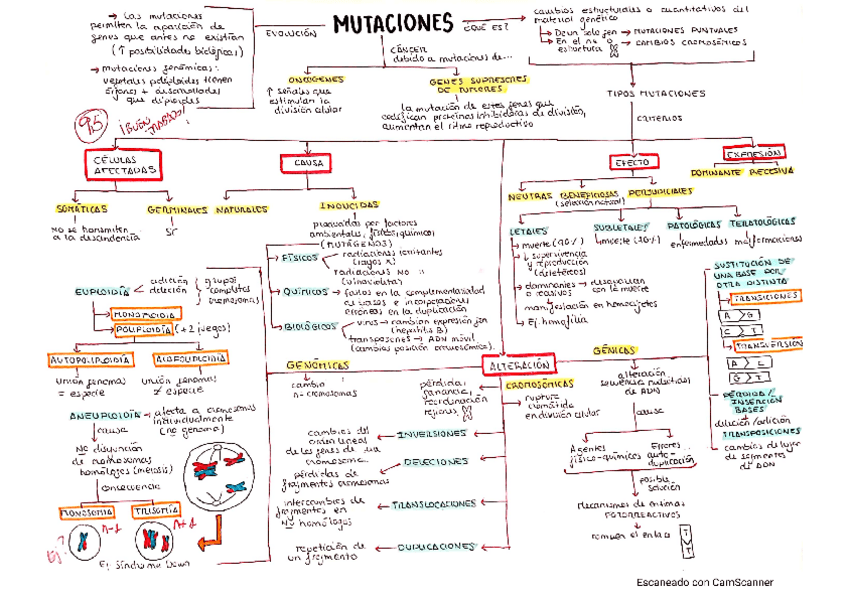 → Las mutaciones
permiten la aparición de
genes que antes no existían
(↑ posibilidades biológicas)
→ mutaciones genómicas:
vegetales poliploides tienen
órganos + desarrollados
que diploides
EVOLUCIÓN
MUTACIONES
¿QUÉ ES?
cambios estructurales o cuantitativos del
material genético
→ De un solo gen → MUTACIONES PUNTUALES
→ En el nº o estructura → CAMBIOS CROMOSÓMICOS
CÁNCER
debido a mutaciones de...
ONCOGENES
↑ señales que
estimulan la
división celular
GENES SUPRESORES
DE TUMORES
la mutación de estos genes que
codifican proteínas inhibidoras de división,
aumentan el ritmo reproductivo
TIPOS MUTACIONES
CRITERIOS
9,5
¡BUEN TRABAJO!
CÉLULAS
AFECTADAS
CAUSA
EFECTO
EXPRESIÓN
DOMINANTE RECESIVA
SOMÁTICAS
GERMINALES
NATURALES
INDUCIDAS
no se transmiten
a la descendencia
SÍ
producidas por factores
ambientales, físicos, químicos
(MUTÁGENOS)
FÍSICOS
radiaciones ionizantes
(rayos X)
radiaciones NO
(ultravioleta)
QUÍMICOS → fallos en la complementariedad
de bases e incorporaciones
erróneas en la duplicación
BIOLÓGICOS
virus → cambian expresión gen
(hepatitis B)
transposones → ADN móvil
(cambios posición cromosómica)
NEUTRAS BENEFICIOSAS PERJUDICIALES
(selección natural)
LETALES
→ muerte (90%)
→ ↓ supervivencia
y reproducción
→ dominantes → desaparecen
o recesivos con la muerte
manifestación en homocigotos
→ Ej. hemofilia
SUBLETALES
PATOLÓGICAS
enfermedades
TERATOLÓGICAS
malformaciones
EUPLOIDÍA
adición
deleción
grupos
completos
cromosomas
MONOPLOIDÍA
POLIPLOIDÍA (+2 juegos)
AUTOPOLIPLOIDÍA
ALOPOLIPLOIDÍA
unión genomas
= especie
unión genomas
≠ especie
ANEUPLOIDÍA → afecta a cromosomas
individualmente
(no genoma)
causa
No disyunción
de cromosomas
homólogos (meiosis)
consecuencia
MONOSOMÍA
TRISOMÍA
n-1
n+1
Ej?
Ej síndrome Down
ALTERACIÓN
GENÓMICAS
cambio
nº cromosomas
CROMOSÓMICAS
pérdida,
ganancia,
reordenación
regiones
ruptura
cromátida
en división celular
cambios del
orden lineal
de los genes de un
cromosoma
INVERSIONES
pérdidas de
fragmentos cromosoma
DELECIONES
intercambios de
fragmentos en
NO homólogos
TRANSLOCACIONES
repetición de
un fragmento
DUPLICACIONES
GÉNICAS
alteración
secuencia nucleótidos
de ADN
causa
Agentes
físico-químicos
Errores
auto-
duplicación
posible
solución
mecanismos de enzimas
FOTORREACTIVOS
rompen el enlace
T
T
SUSTITUCIÓN DE
UNA BASE POR
OTRA DISTINTA
TRANSICIONES
A > G
C > T
TRANSVERSIÓN
A > C
G > T
PÉRDIDA/
INSERCIÓN
BASES
deleción/adición
TRANSPOSICIONES
cambios de lugar
de segmentos
de ADN
Escaneado con CamScanner